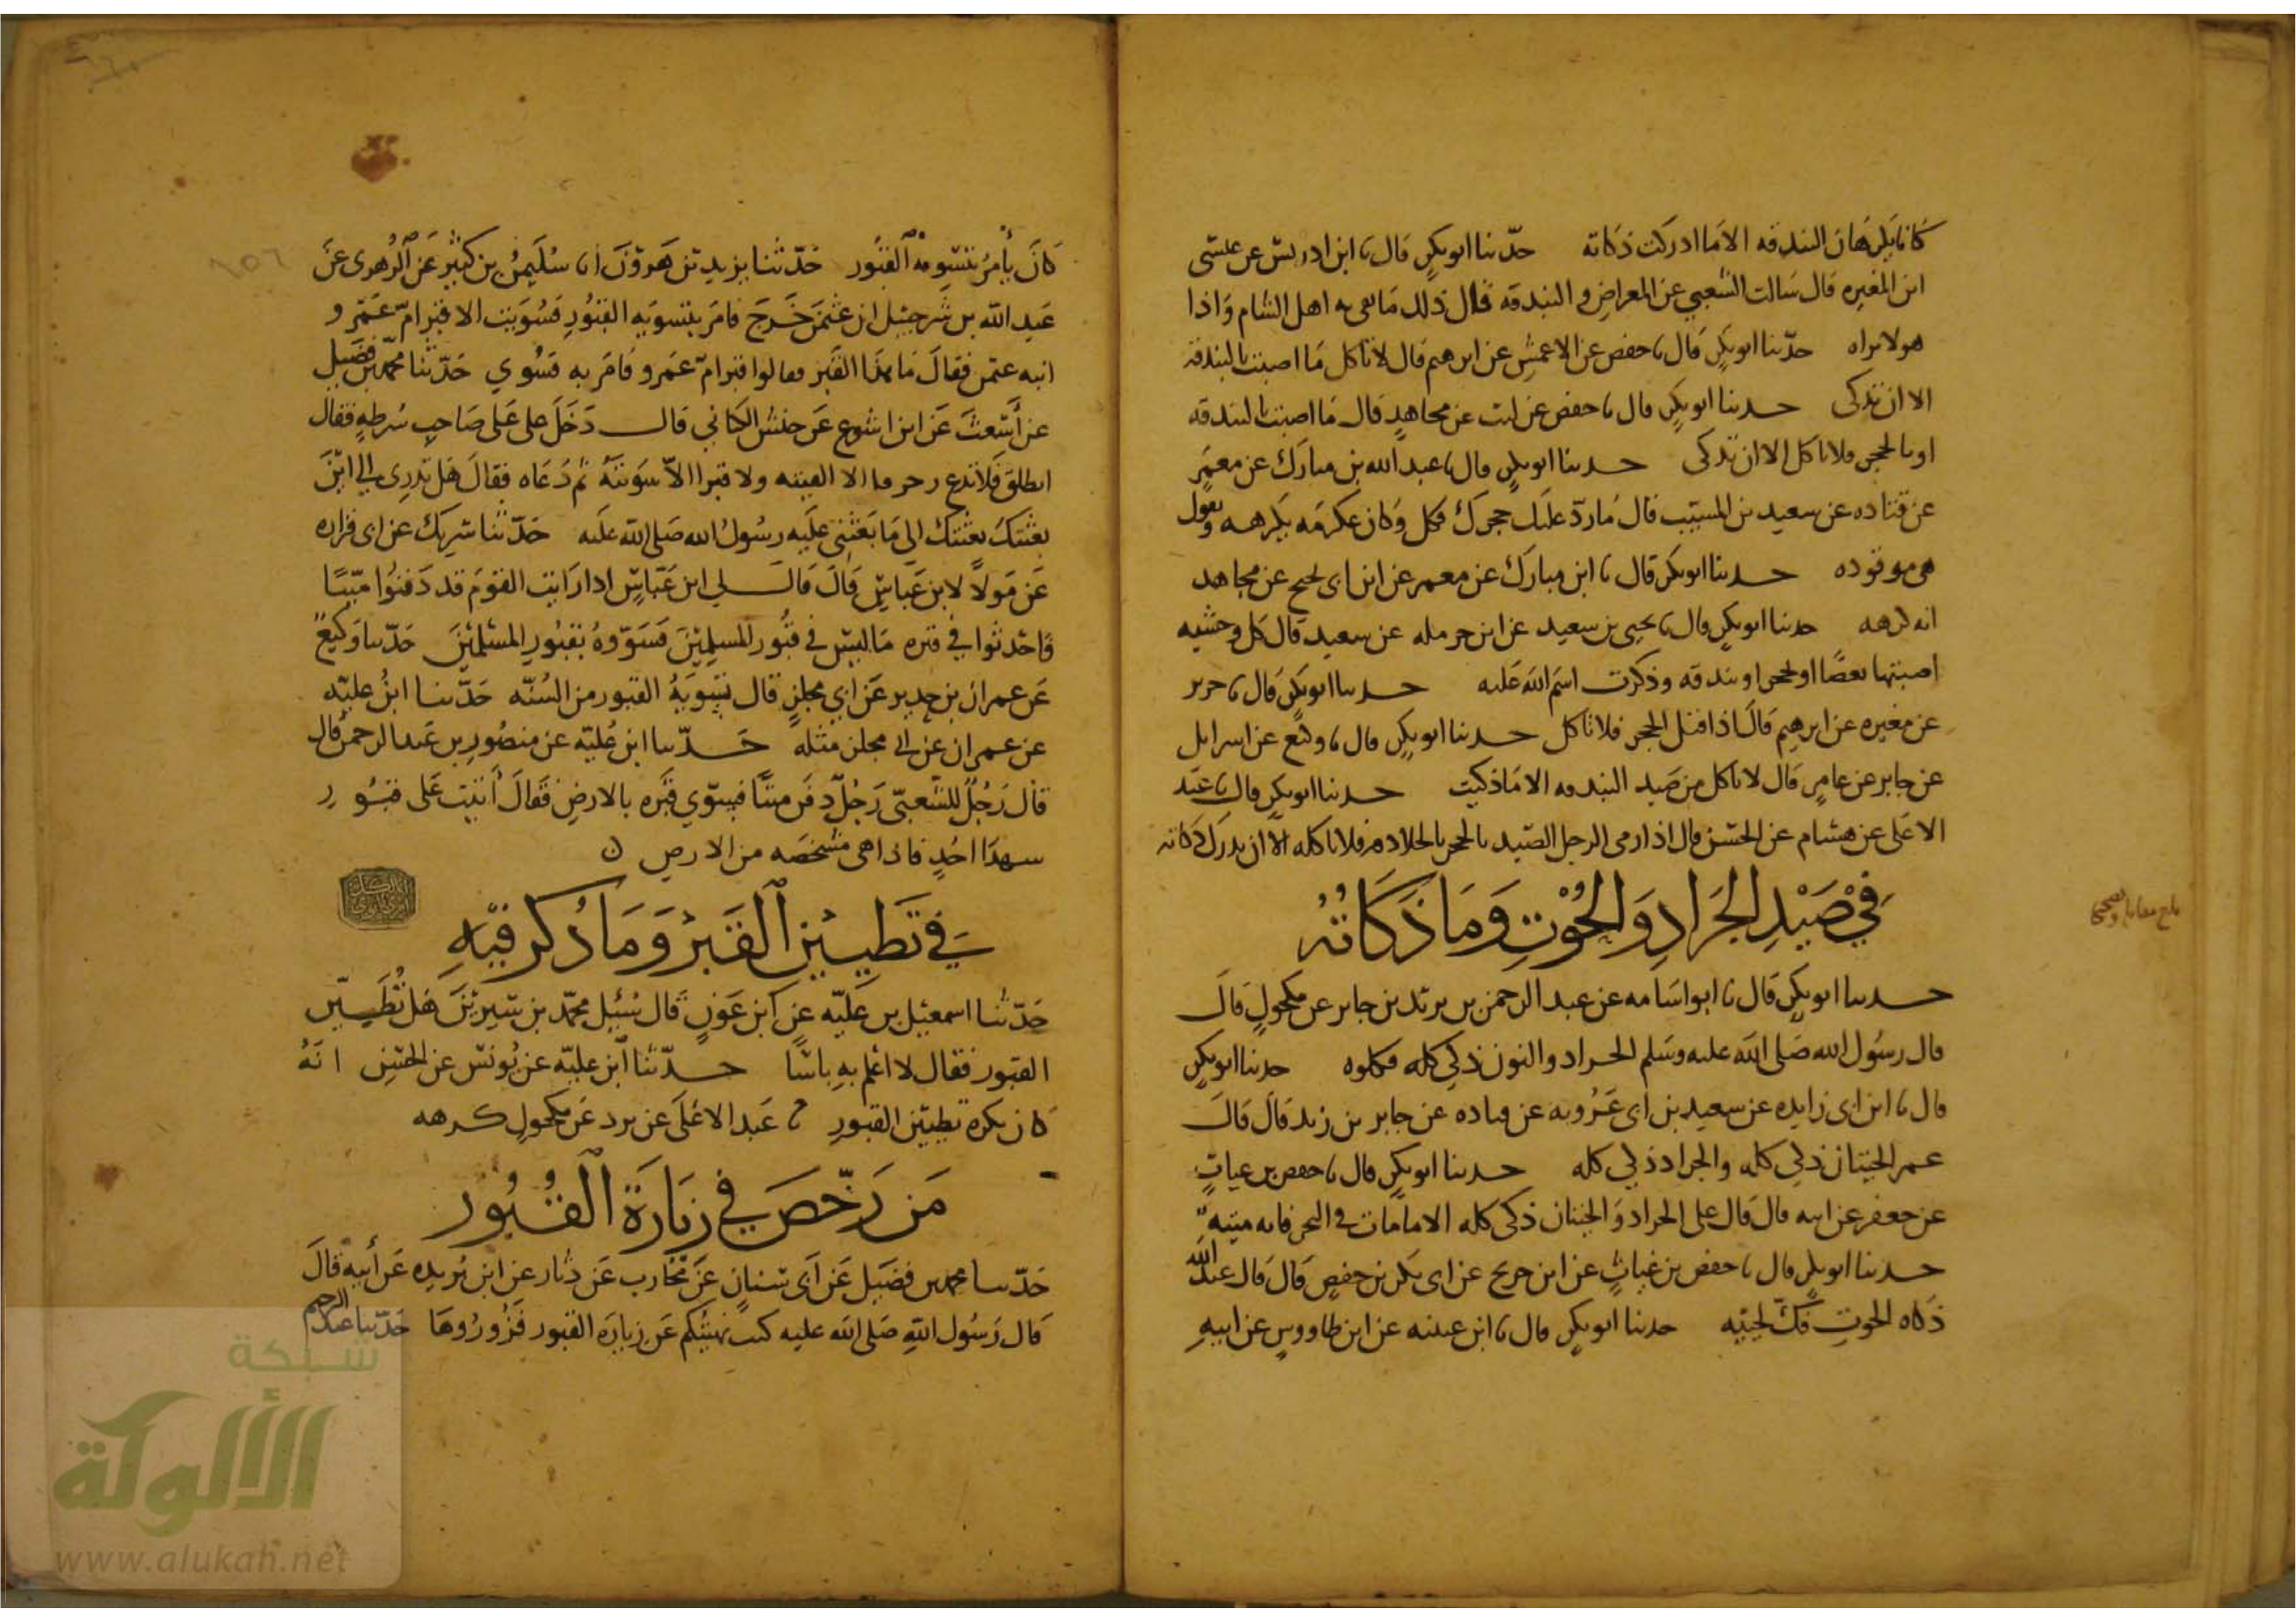 كانا يكرهان البندقه الا ما ادركت ذكاته حدثنا ابو بكر قال نا ابن ادريس عن عيسى
ابن المغيره قال سالت الشعبي عن المعراض والبندقه فقال ذلك مما يعى به اهل الشام واذا
هو لا يراه حدثنا ابو بكر قال نا حفص عن الاعمش عن ابرهيم قال لا تاكل ما اصبت بالبندقة
الا ان تذكى حدثنا ابو بكر قال نا حفص عن ليث عن مجاهد قال ما اصبت بالبندقه
او بالحجر فلا تاكل الا ان تذكى حدثنا ابو بكر قال نا عبد الله بن مبارك عن معمر
عن قتاده عن سعيد بن المسيب قال ما رد عليك حجرك فكل وكان عكرمه يكرهه ويقول
هي موقوذه حدثنا ابو بكر قال نا ابن مبارك عن معمر عن ابن ابي نجيح عن مجاهد
انه كرهه حدثنا ابو بكر قال نا يحيى بن سعيد عن ابن حرمله عن سعيد قال كل وحشيه
اصبتها بعصا او بحجر او بندقه وذكرت اسم الله عليه حدثنا ابو بكر قال نا جرير
عن مغيره عن ابرهيم قال اذا قتل الحجر فلا تاكل حدثنا ابو بكر قال نا وكيع عن اسرايل
عن جابر عن عامر قال لا تاكل من صيد البندقه الا ما ذكيت حدثنا ابو بكر قال نا عبد
الاعلى عن هشام عن الحسن قال اذا رمى الرجل الصيد بالحجر بالجلاهق فلا تاكله الا ان تدرك ذكاته
في صيد الجراد والحوت وما ذكاته
حدثنا ابو بكر قال نا ابو اسامه عن عبد الرحمن بن يزيد بن جابر عن مكحول قال
قال رسول الله صلى الله عليه وسلم الجراد والنون ذكي كله فكلوه حدثنا ابو بكر
قال نا ابن ابي زايده عن سعيد بن ابي عروبه عن قتاده عن جابر بن زيد قال قال
عمر الحيتان ذكي كله والجراد ذكي كله حدثنا ابو بكر قال نا حفص بن غياث
عن جعفر عن ابيه قال قال علي الجراد والحيتان ذكي كله الا ما مات في البحر فانه ميته
حدثنا ابو بكر قال نا حفص بن غياث عن ابن جريج عن ابي بكر بن حفص قال قال عبد الله
ذكاه الحوت فك لحييه حدثنا ابو بكر قال نا ابن عيينه عن ابن طاووس عن ابيه
بلغ مقابلة وتصحيحا
كان يامر بتسويه القبور حدثنا يزيد بن هرون انا سليمن بن كثير عن الزهري عن
عبد الله بن شرحبيل ان عثمن خرج فامر بتسويه القبور فسويت الا قبر ام عمرو
ابنه عثمن فقال ما هذا القبر فقالوا قبر ام عمرو فامر به فسوي حدثنا محمد بن فضيل
عن اشعث عن ابن اشوع عن حنش الكناني قال دخل علي على صاحب شرطه فقال
انطلق فلا تدع زخرفا الا القيته ولا قبرا الا سويته ثم دعاه فقال هل تدري الى اين
بعثتك بعثتك الى ما بعثني عليه رسول الله صلى الله عليه حدثنا شريك عن ابي فزاره
عن مولا لابن عباس قال قال لي ابن عباس اذا رايت القوم قد دفنوا ميتا
فاحدثوا في قبره ما ليس في قبور المسلمين فسووه بقبور المسلمين حدثنا وكيع
عن عمران بن حدير عن ابي مجلز قال تسويه القبور من السنه حدثنا ابن عليه
عن عمران عن ابي مجلز مثله حدثنا ابن عليه عن منصور بن عبد الرحمن قال
قال رجل للشعبي رجل دفن ميتا فسوي قبره بالارض فقال اتيت على قبور
شهدا احد فاذا هي مشخصه من الارض
في تطيين القبر وما ذكر فيه
حدثنا اسمعيل بن عليه عن ابن عون قال سئل محمد بن سيرين هل تطين
القبور فقال لا اعلم به باسا حدثنا ابن عليه عن يونس عن الحسن انه
كان يكره تطيين القبور نا عبد الاعلى عن برد عن مكحول كرهه
من رخص في زيارة القبور
حدثنا محمد بن فضيل عن ابي سنان عن محارب عن دثار عن ابن بريده عن ابيه قال
قال رسول الله صلى الله عليه كنت نهيتكم عن زيارة القبور فزوروها حدثنا عبد الرحيم
شبكة
الألوكة
www.alukah.net